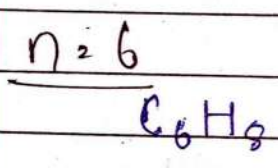 n = 6
C₆H₈